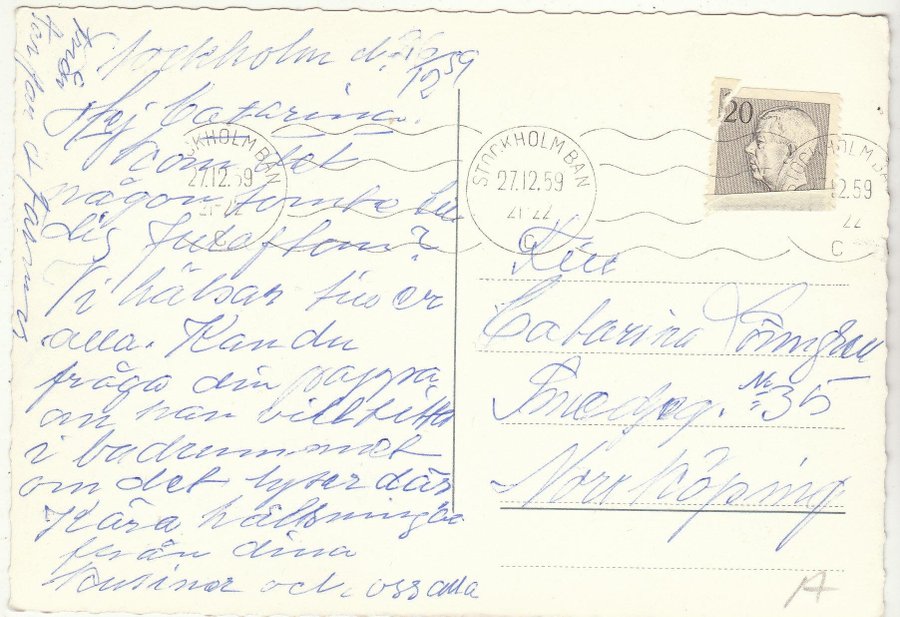 Stockholm d.
12 59
Hej Catarina.
kom det
någon tomte till
dig Julafton?
Vi hälsar till er
alla. Kan du
fråga din pappa
om han vill titta
i badrummet
om det lyser där
Kära hälsningar
från dina
kusiner och oss alla
från
STOCKHOLM BAN
27.12.59
21-22
C
STOCKHOLM BAN
27.12.59
21-22
C
20
STOCKHOLM BAN
12.59
22
C
Till
Catarina
Smedjeg. No 35
Norrköping
A